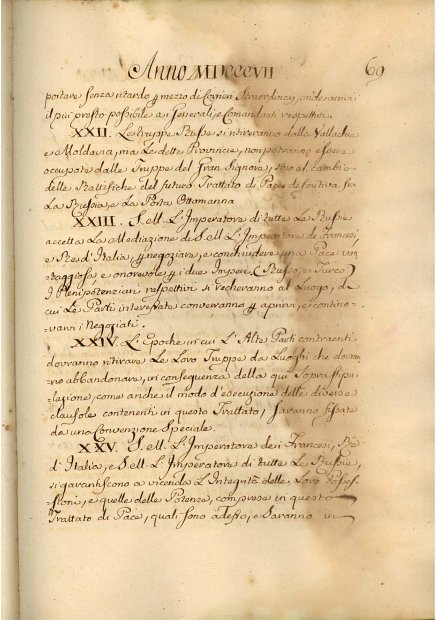 Anno MDCCCVII 69
portare senza ritardo p mezzo di Corrieri Straordinarj, onde arrivi
il più presto possibile a i Generali, e Comandanti respettivi.
XXII. Le truppe Russe si ritireranno dalla Vallachia
e Moldavia, ma Le dette Provincie, non potranno essere
occupate dalle Truppe del Gran Signore, fino al cambio
delle Ratifiche del futuro Trattato di Pace definitiva fra
La Russia, e La Porta Ottomanna
XXIII. S. e R. L'Imperatore di tutte Le Russie
accetta La Mediazione di S. M. L'Imperatore de Francesi,
e Re d'Italia, p negoziare, e conchiudere una Pace van-
taggiosa, e onorevole p i due Imperi, (Russo, e Turco)
I Plenipotenziari respettivi si recheranno al Luogo, di
cui Le Parti interessate converranno p aprirvi, e contino-
varvi i Negoziati.
XXIV. L'Epoche in cui L'Alte Parti contraenti
dovranno ritirare Le Loro Truppe da Luoghi che dovran-
no abbandonare, in conseguenza della qui Soprastipu-
lazione, come anche il modo d'esecuzione delle diverse
clausole contenute in questo Trattato, Saranno fissate
da una Convenzione Speciale.
XXV. S. M. L'Imperatore dei Francesi, Re
d'Italia, e S. M. L'Imperatore di tutte Le Russie,
si garantiscono a vicenda L'Integrità delle Loro Posses-
sioni, e quelle delle Potenze, comprese in questo
Trattato di Pace, quali sono adesso, e Saranno in